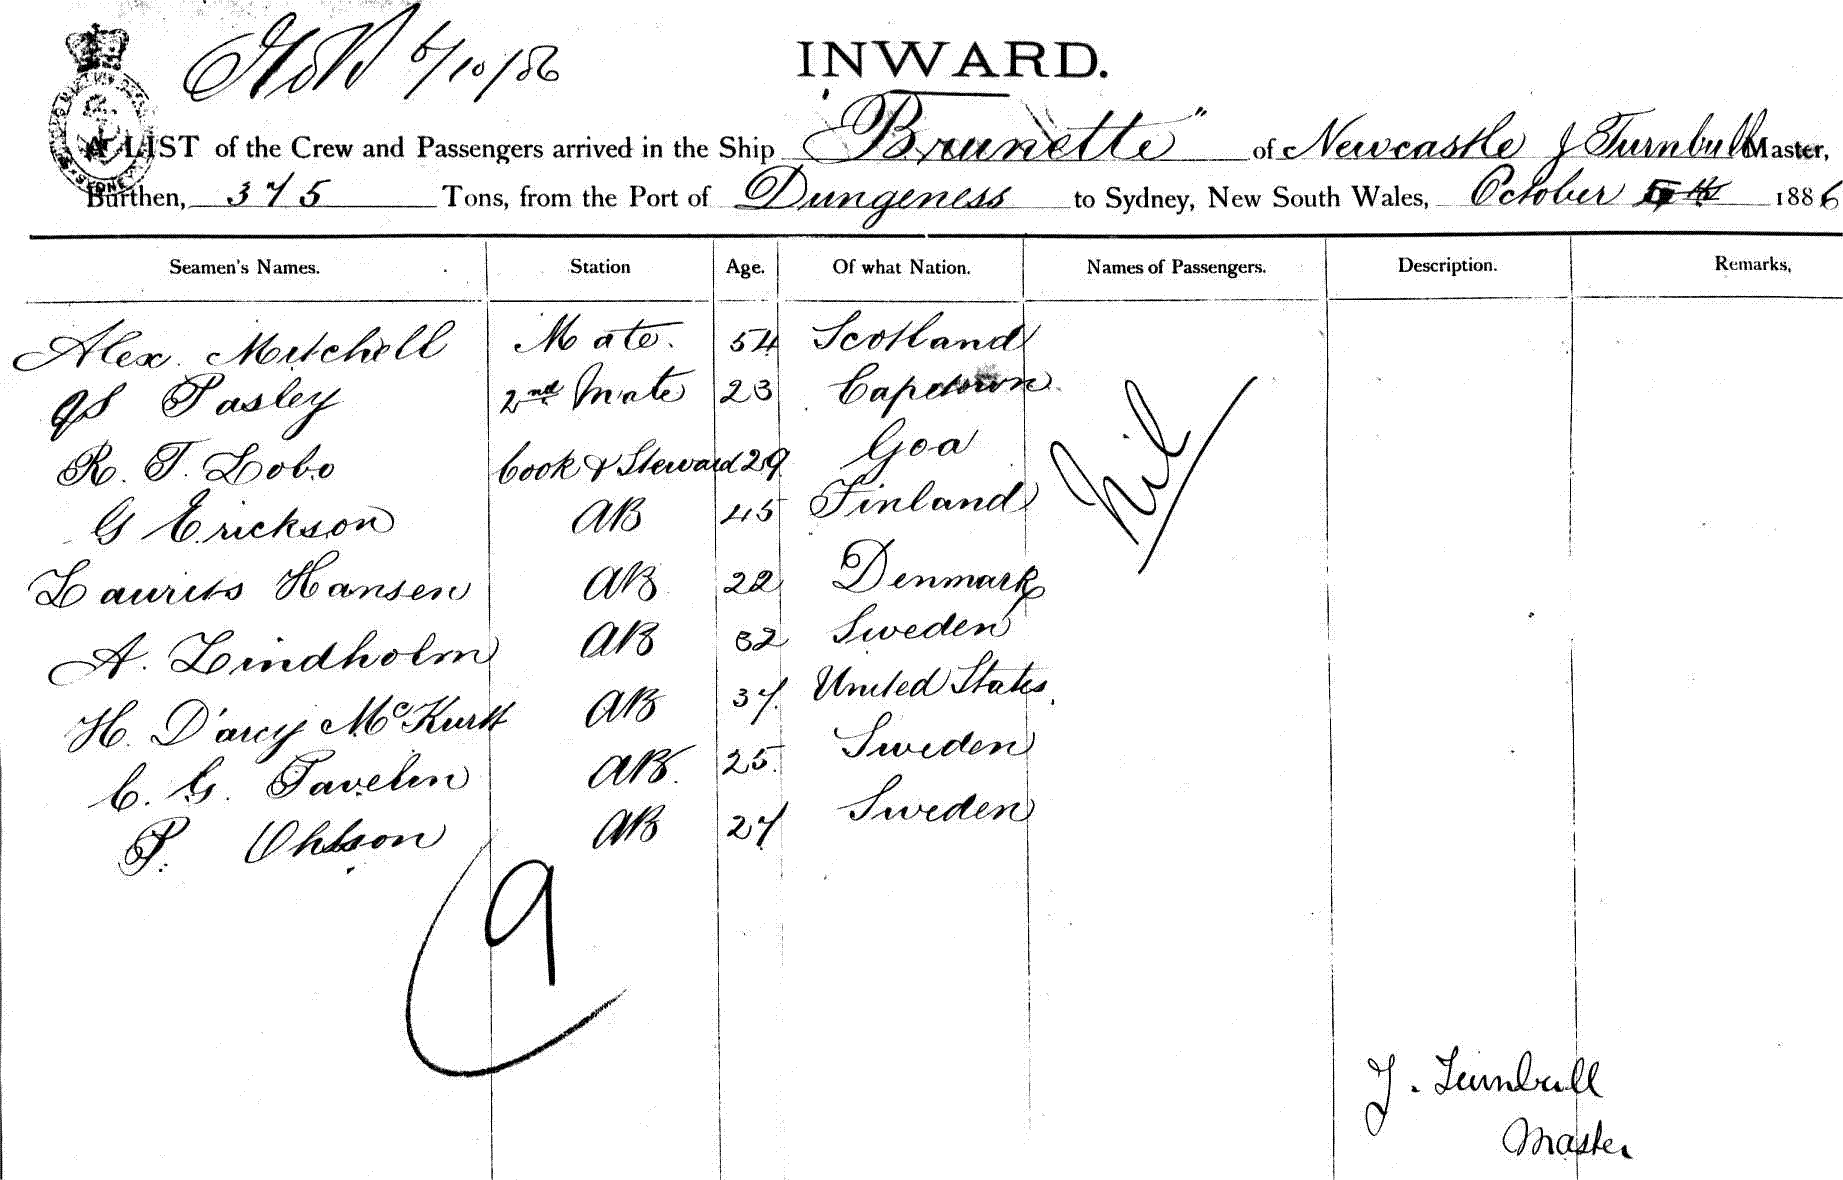 6/10/86
INWARD.
A LIST of the Crew and Passengers arrived in the Ship "Brunette" of Newcastle J Turnbull Master,
Burthen, 375 Tons, from the Port of Dungeness to Sydney, New South Wales, October 5th 1886
Seamen's Names. Station Age. Of what Nation. Names of Passengers. Description. Remarks,
Alex. Mitchell Mate. 54 Scotland
Pasley 2nd Mate 23 Capetown
R. T. Lobo Cook & Steward 29 Goa
G Erickson AB 45 Finland
Laurits Hansen AB 22 Denmark
A. Lindholm AB 32 Sweden
H. D'arcy AB 37 United States
C. G. Tavelin AB. 25 Sweden
P. Ohlson AB 27 Sweden
Nil
9
J. Turnbull
Master